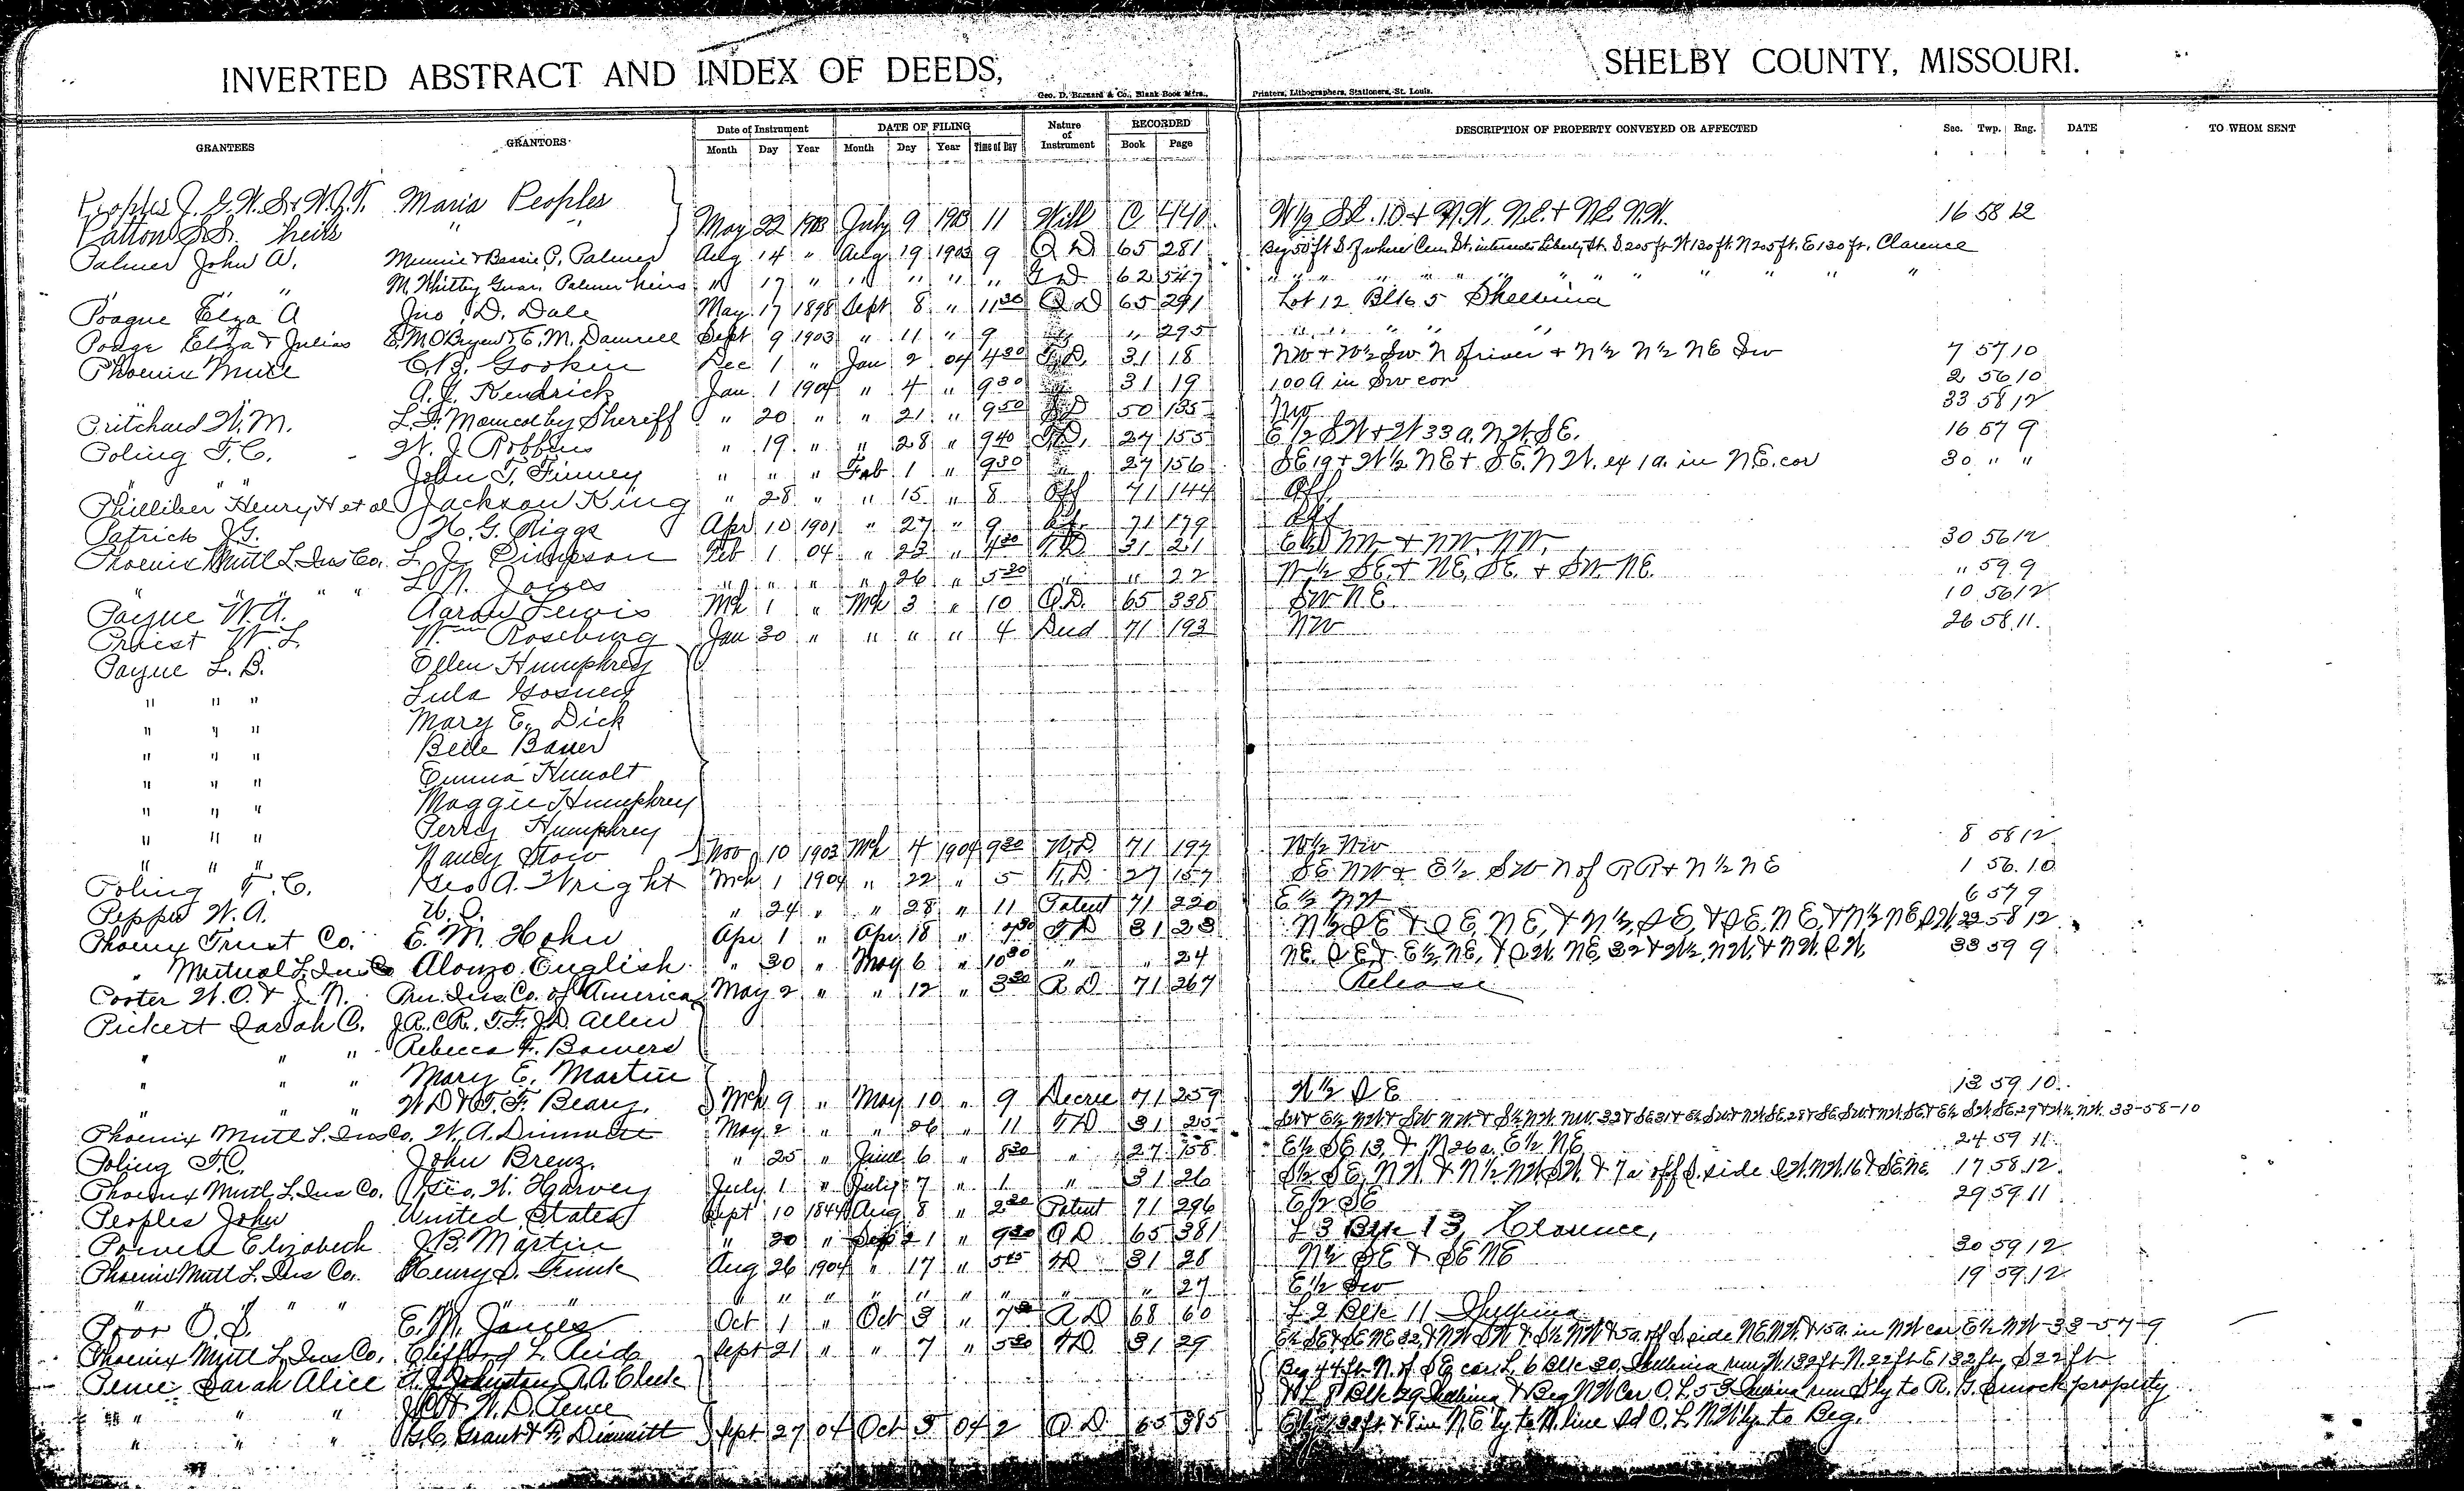 INVERTED ABSTRACT AND INDEX OF DEEDS, SHELBY COUNTY, MISSOURI.
Geo. D. Barnard & Co., Blank Book Mfrs., Printers, Lithographers, Stationers, St. Louis.
GRANTEES GRANTORS Date of Instrument DATE OF FILING Nature of Instrument RECORDED DESCRIPTION OF PROPERTY CONVEYED OR AFFECTED Sec. Twp. Rng. DATE TO WHOM SENT
Month Day Year Month Day Year Time of Day Book Page
Peoples J. G. W. S. & W. J. T. Maria Peoples
Patton S. S. heirs " " May 22 1903 July 9 1903 11 Will C 440 W½ SE. 10 & N.W. NE. & NE. N.W. 16 58 12
Palmer John A. Minnie & Bessie P. Palmer Aug 14 " Aug 19 1903 9 Q D 65 281 Beg 50 ft S of where Cen. St. intersects Liberty St. S 205 ft W 130 ft. N 205 ft. E 130 ft. Clarence
" " M. Whitby Guar. Palmer heirs " 17 " " " " " G D 62 547 " " " " " " " " " "
Poague Elza A Jno. D. Dale May 17 1898 Sept 8 " 11 30 Q D 65 291 Lot 12 Blk 5 Shelbina
Poage Eliza & Julias E. M. O'Bryen & E. M. Damrell Sept 9 1903 " 11 " 9 " " 295 " " " " "
Phoenix Mutl C. B. Gookin Dec 1 " Jan 2 04 4 30 T. D. 31 18 NW & W½ SW N of river & N½ N½ NE SW 7 57 10
A. J. Kendrick Jan 1 1904 " 4 " 9 30 31 19 100 a in SW cor 2 56 10
Pritchard W. M. by Sheriff " 20 " " 21 " 9 50 S D 50 135 NW 33 58 12
Poling T. C. W. J. Robbins " 19 " " 28 " 9 40 T. D. 27 155 E½ SW & W 33 a. NW. SE. 16 57 9
" " John T. Finney " " " Feb 1 " 9 30 " 27 156 SE 19 & W½ NE & SE. N W. ex 1 a. in NE. cor 30 " "
Philliber Henry H et al Jackson King " 28 " " 15 " 8 Aff 71 144 Aff.
Patrick J. G. H. G. Riggs Apr 10 1901 " 27 " 9 Aff. 71 179 Aff
Phoenix Mutl L. Ins Co. L. J. Simpson Feb 1 04 " 23 " 4 30 T D 31 21 NW & NW. NW. 30 56 12
" " " " L. N. Jones " " " " 26 " 5 30 " " 22 N½ SE. & NE, SE. & SW. NE. " 59 9
Payne W. A. Aaron Lewis Mch 1 " Mch 3 " 10 Q. D. 65 335 SW NE. 10 56 12
Priest W. L. Wm Rosebing Jan 30 " " " " 4 Ded 71 193 NW 26 58 11
Payne L. B. Ellen Humphrey
" " " Lula Gosney
" " " Mary E. Dick
" " " Belle Baner
" " " Emma Hunolt
" " " Maggie Humphrey
" " " Perry Humphrey
" " " Nancy Stow Nov 10 1903 Mch 4 1904 9 30 W. D. 71 197 W½ NW 8 58 12
Poling T. C. Geo A. Wright Mch 1 1904 " 22 " 5 T. D. 27 157 SE. NW & E½ SW N of RR & N½ NE 1 56 10
Pepper W. A. U. S. " 24 " " 28 " 11 Patent 71 220 E½ NW 6 57 9
Phoenix Trust Co. E. M. Hohn Apr 1 " Apr 18 " 7 30 T D 31 23 N½ SE & SE, NE, & N½, SE, & SE, NE, & N½, NE, SW, 22 58 12
" Mutual L. Ins Co Alonzo English " 30 " May 6 " 10 30 " " 24 NE. SE, & E½, NE, & SW. NE, 32 & W½, NW, & NW. SW, 33 59 9
Coster W. O. & J. N. Pru. Ins. Co. of America May 2 " " 12 " 3 30 R. D 71 267 Release
Pickert Sarah C. J. R., C. R., T. F., J. D. Allen
" " " Rebecca F. Bowers
" " " Mary E. Martin
" " " W D & T. F. Beary. Mch 9 " May 10 " 9 Decree 71 259 W½ SE 13 59 10
Phoenix Mutl L. Ins Co. W. A. Dimmitt May 2 " " 26 " 11 T D 31 25 33-58-10
Poling T. C. John Brenz. " 25 " June 6 " 8 30 " 27 158 E½ SE 13, & N 26 a. E½ NE 24 59 11
Phoenix Mutl. L. Ins Co. Geo. W. Harvey July 1 " July 7 " 1 " 31 26 S½ SE, NW & N½ NW SW & 7 a off S. side SW. NW. 16 & SE NE 17 58 12
Peoples John United States Sept 10 1844 Aug 8 " 2 30 Patent 71 296 E½ SE 29 59 11
Powell Elizabeth J. B. Martin " 20 " Sept 21 " 9 30 Q D 65 381 L 3 Blk 13, Clarence,
Phoenix Mutl L. Ins Co. Henry S. Funk Aug 26 1904 " 17 " 5 45 T D 31 28 N½ SE & SE NE 30 59 12
" " " " " " " " " " " " " " 27 E½ SW 19 59 12
Poor O. S. E. M. James Oct 1 " Oct 3 " 7 30 Q D 68 60 L 2 Blk 11 Shelbina
Phoenix Mutl L Ins Co, Clifford L. Reid Sept 21 " " 7 " 5 30 T D 31 29 E½ SE & SE NE 32, & NW SW & S½ NW & 5 a. off S. side NE NW. & 15 a. in NW cor E½ NW-33-57-9
Pence Sarah Alice A. J. Johnston, R. A. Cheek Beg 44 ft. N. of SE cor L. 6 Blk 30, Shelbina run W. 132 ft N. 22 ft E 132 ft, S 22 ft
" " " W. D. Pence W L 8 Blk 29 Shelbina & Beg NW Cor O. L. 53 Shelbina run Sly to R. G. Smock property
" " " G. C. Grant & F. Dimmitt Sept 27 04 Oct 5 04 2 Q D 65 385 Ely 130 ft & 8 in N. E ly to N. line Sd O. L. N. Wly. to Beg.